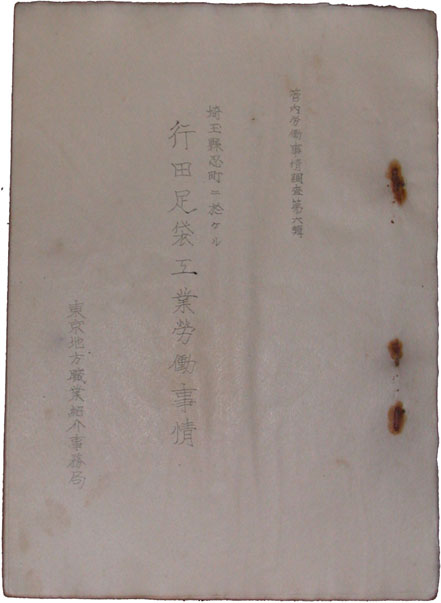 管内労働事情調査第六輯
埼玉縣忍町ニ於ケル
行田足袋工業勞働事情
東京地方職業紹介事務局